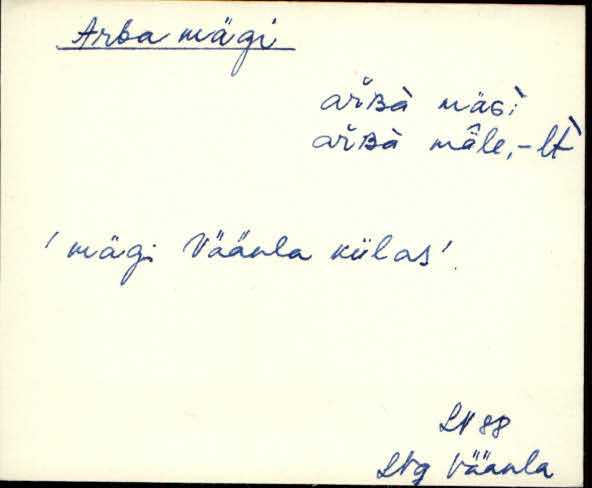 Arba mägi
ar̆ʙà mäɢì
ar̆ʙà mäle, -lt̀
'mägi Väänla külas'.
LN 88
LNg Väänla